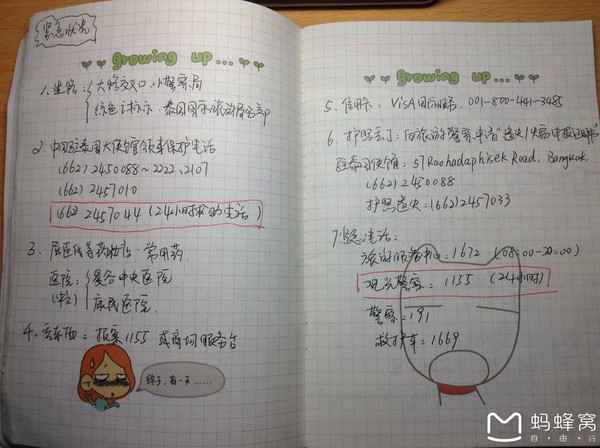 紧急状况
growing up...
1. 迷路: 大路交叉口 小警察局
绿色计标示 泰国国际旅游局分部
2. 中国驻泰国大使馆领事保护电话
(662) 2450088~2222, 2107
(662) 2457010
(662) 2457044 (24小时的电话)
3. 屈臣氏等药妆店 常用药
医院: 曼谷中央医院
(中文) 康民医院
4. 丢东西: 报案1155 或商场服务台
终于,有一天……
growing up...
5. 信用卡: VISA 国际服务: 001-800-441-3485
6. 护照丢了: 向旅游警察申请"遗失/失窃申报证明书"
驻泰国使馆: 57 Rachadaphisek Road, Bangkok.
(662) 2450088
护照遗失: (662) 2457033
7. 紧急电话:
旅游服务中心: 1672 (08:00-20:00)
观光警察: 1155 (24小时)
警察: 191
救护车: 1669
蚂蜂窝
自由行